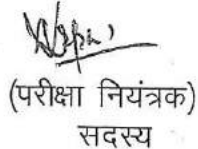 (परीक्षा नियंत्रक)
सदस्य